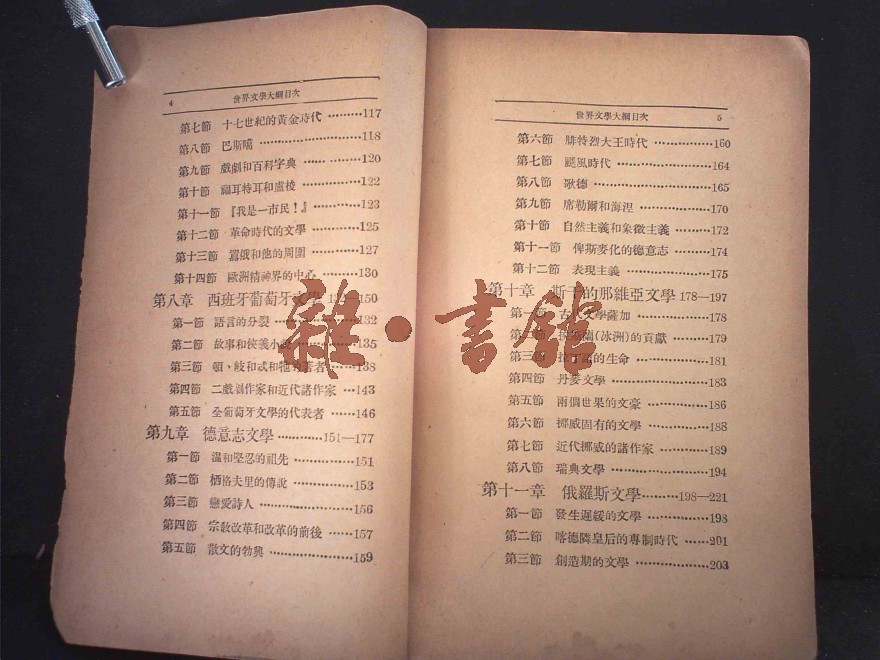 4 世界文學大綱目次
第七節 十七世紀的黃金時代 ………117
第八節 巴斯噶 ………………118
第九節 戲劇和百科字典 …… …………120
第十節 福耳特耳和盧梭 ……………122
第十一節 『我是一市民！』 …………123
第十二節 革命時代的文學 …………125
第十三節 囂俄和他的周圍 …………127
第十四節 歐洲精神界的中心 ………130
第八章 西班牙葡萄牙文學 132—150
第一節 語言的分裂 ………………132
第二節 故事和俠義小說 ……………135
第三節 頓、岐和忒和牠的著者 ……138
第四節 二戲劇作家和近代諸作家 …143
第五節 全葡萄牙文學的代表者 ……146
第九章 德意志文學 …………151—177
第一節 溫和堅忍的祖先 ……………151
第二節 栖格夫里的傳說 ……………153
第三節 戀愛詩人 …………………156
第四節 宗敎改革和改革的前後 ……157
第五節 散文的勃興 …………………159
世界文學大綱目次 5
第六節 腓特烈大王時代 ……………160
第七節 颶風時代 …………………164
第八節 歌德 ………………………165
第九節 席勒爾和海涅 ………………170
第十節 自然主義和象徵主義 ………172
第十一節 俾斯麥化的德意志 ………174
第十二節 表現主義 …………………175
第十章 斯干的那維亞文學 178—197
第一節 古代文學薩加 ………………178
第二節 (冰洲)的貢獻 ………179
第三節 的生命 ……………181
第四節 丹麥文學 …………………183
第五節 兩個世界的文豪 ……………186
第六節 挪威固有的文學 ……………188
第七節 近代挪威的諸作家 …………189
第八節 瑞典文學 …………………194
第十一章 俄羅斯文學………198—221
第一節 發生遲緩的文學 ……………198
第二節 喀德隣皇后的專制時代 ……201
第三節 創造期的文學 ………………203
雜·書館